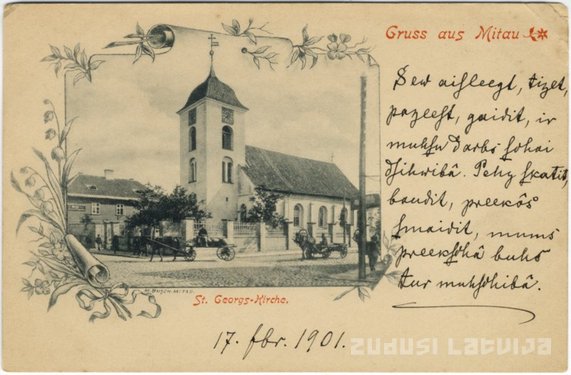 Gruss aus Mitau
Sew aisleegt, tizet,
pazeest, gaidit, ir
muhsu darbs schai
dsihwibâ. Pehz skatit,
baudit, preekôs
smaidit, mums
preekschâ buhs
tur muhschibâ.
St. Georgs-Kirche.
17. fbr. 1901.
ZUDUSI LATVIJA